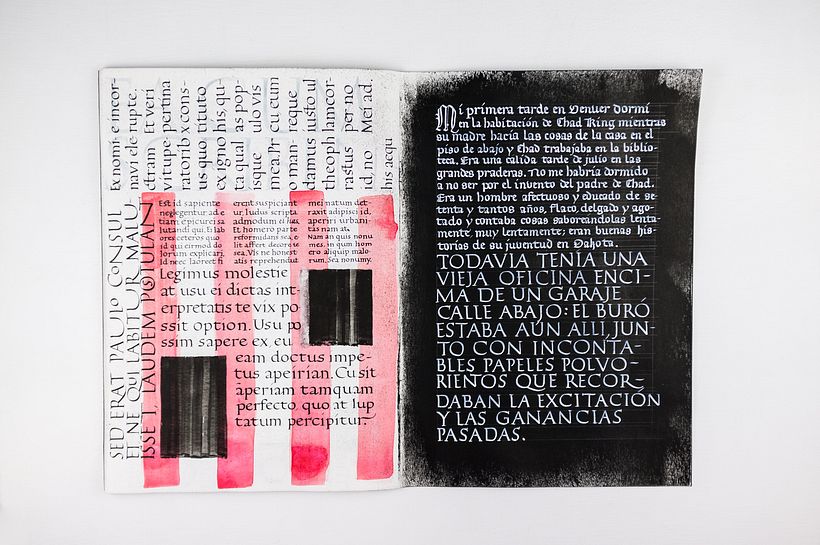 Ex nomi- e incor-
navi ele rupte.
ctram. Et veri
vitupe- pertina
ratorib x cons-
us quo tituto
ex igno his qu-
ta qual as pop-
isque ulo vis
mca. Pr cu eum
o man- reque
damus iusto ul
theoph lamcor-
rastus per no
id, no Mei ad.
his acqu
SED ERAT PAULO CONSUL
ET NE QUI LABITUR MALU
ISSE T, LAUDEM POSTULANT
Est id sapiente
neglegentur ad e
tiam corpora is
lutandi qui. Ei lab
ores ceteros quo
id qui eirmod do
lorum explicari,
Id nec laoreet fi
erent suspiciant
ur, ludus scripta
admodum ei his,
et homero parte
reformidans sea, e
lit affert decore
sea. Vis ne honest
atis reprehendut
mei natum det-
raxit adipisci id,
aperiri urbani-
tas nam at.
Nam an quis nonu
mes, in qum hom
ero aliquip malo-
rum. Sea nonumy.
Legimus molestie
at usu ei dictas int-
erpretatis te vix po-
ssit option. Usu po
ssim sapere ex, eu
eam doctus impe-
tus apeirian. Cu sit
aperiam tamquam
perfecto, quo at lup
tatum percipitur.
Mi primera tarde en Denver dormi
en la habitación de Chad King mientras
su madre hacía las cosas de la casa en el
piso de abajo y Chad trabajaba en la biblio-
teca. Era una cálida tarde de julio en las
grandes praderas. No me habría dormido
a no ser por el invento del padre de Chad.
Era un hombre afectuoso y educado de se-
tenta y tantos años, flaco, delgado y ago-
tado y contaba cosas saboreándolas lenta-
mente, muy lentamente; eran buenas his-
torias de su juventud en Dakota.
TODAVIA TENÍA UNA
VIEJA OFICINA ENCI-
MA DE UN GARAJE
CALLE ABAJO: EL BURÓ
ESTABA AÚN ALLI, JUN-
TO CON INCONTA-
BLES PAPELES POLVO-
RIENTOS QUE RECOR-
DABAN LA EXCITACIÓN
Y LAS GANANCIAS
PASADAS.